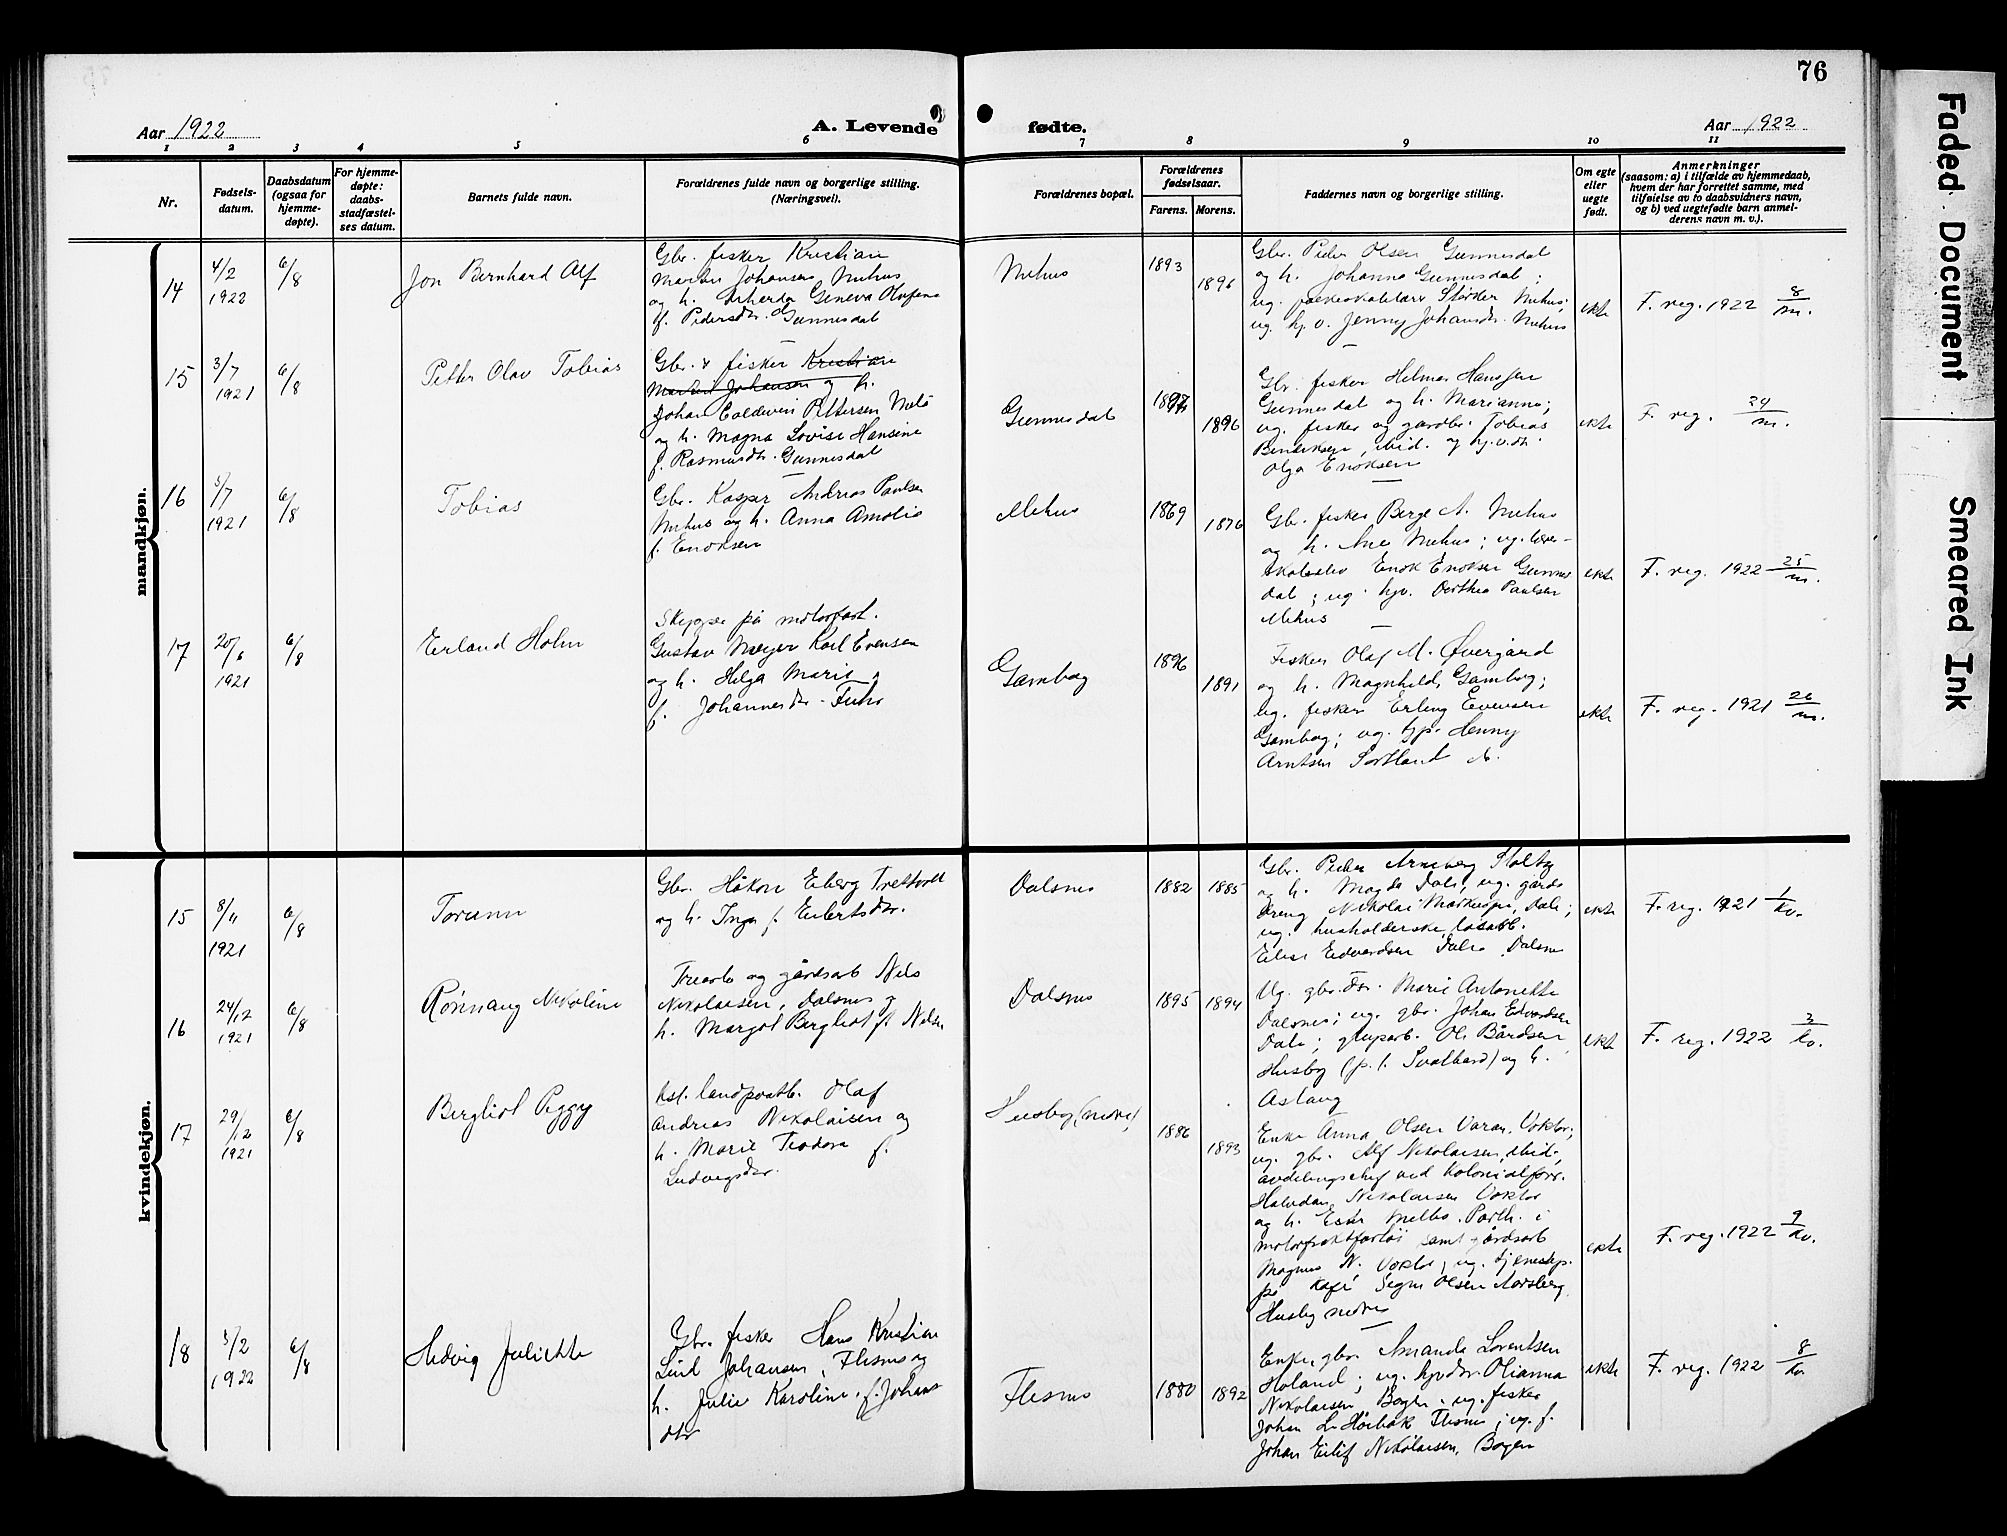 76
Aar 1922
A. Levende
fødte.
Aar 1922
1 2 3 4 5 6 7 8 9 10 11
Nr.
Fødsels-
datum.
Daabsdatum
(ogsaa for
hjemme-
døpte).
For hjemme-
døpte:
daabs-
stadfæstel-
ses datum.
Barnets fulde navn.
Forældrenes fulde navn og borgerlige stilling.
(Næringsvei).
Forældrenes bopæl.
Forældrenes
fødselsaar.
Farens. Morens.
Faddernes navn og borgerlige stilling.
Om egte
eller
uegte
født.
Anmerkninger
(saasom: a) i tilfælde av hjemmedaab,
hvem der har forrettet samme, med
tilføielse av to daabsvidners navn,
og b) ved uegtefødte barn anmel-
derens navn m. v.).
mandkjøn.
14
4/2
1922
6/8
Jon Bernhard Alf
Gbr. fisker Kristian
Martin Johansen, Mehus
og h. Geneva Olufine
f. Pedersdr. Gunnesdal
Mehus
1893
1896
Gbr. Peder Olsen Gunnesdal
og h. Johanna Gunnesdal;
ug. Mehus;
ug. hj. v. Jenny Johansdr. Mehus
ekte
F. reg. 1922 8/m.
15
3/7
1921
6/8
Petter Olav Tobias
Gbr. & fisker Kristian
Martin Johansen og h.
Johan Edevin Pettersen
og h. Magna Lovise Hansine
f. Rasmusdtr. Gunnesdal
Gunnesdal
1897
1896
Gbr. fisker Helmer Hanssen
Gunnesdal og h. Marianne;
ug. fisker og gardbr. Tobias
Bendiksen, ibid. og hj.v.dtr.
Olga Enoksen
ekte
F. reg. 24/m.
16
5/7
1921
6/8
Tobias
Gbr. Kasper Andreas Paulsen
Mehus og h. Anna Amalie
f. Enoksen
Mehus
1869
1876
Gbr. fisker Berge A. Mehus
og h. Anes Mehus; ug. lærer-
skoleelev Enok Enoksen Gunnes
dal; ug. hjv. Dorthea Paulsen
Mehus
ekte
F. reg. 1922 25/m.
17
20/6
1921
6/8
Erland Holm
Skipper på motorfart.
Gustav Meyer Karl Evensen
og h. Helga Marie
f. Johannesdr.
Gamborg
1896
1891
Fisker Olaf M. Øvergård
og h. Magnhild, Gamborg;
ug. fisker Erling Evensen
Gamborg; ug. tjp. Henny
Arntsen Sortland
ekte
F. reg. 1921 26/m.
kvindekjøn.
15
8/11
1921
6/8
Torunn
Gbr. Håkon Eiberg Trettvold
og h. Inga f. Eilertsdr.
Dalsnes
1882 1885
Gbr. Peder Arneberg Stoltz
og h. Magda Dale, ug. gårds
dreng Nikolai Markussen, Dale;
ug. husholderske
Edvardsen Dale, Dalsnes
ekte
F. reg. 1921 1/kv.
16
24/12
1921
6/8
Rønnaug Nikoline
Trearb. og gårdsarb. Nils
Nikolaisen, Dalsnes og
h. Margot Bergliot f. Nilsen
Dalsnes
1895 1894
Ug. gbr.dtr. Marie Antonette
Dalsnes; ug. gbr. Johan Edvardsen
Dale; gruparb. Ole Bårdsen
Husby (p. t. Svalbard) og h.
Aslaug
ekte
F. reg. 1922 3/kv.
17
29/12
1921
6/8
Bergliot Peggy
Kst. landpostb. Olaf
Andreas Nikolaisen og
h. Marie Teodora f.
Ludvigsdtr.
Husby (nedre)
1886
1893
Enke Anna Olsen Voktor;
ug. gbr. Alf Nikolaisen, ibid.,
avdelingschef ved kolonialforr.
Halvdan Nikolaisen Voktor
og h. Ester Melbo. Parth. i
motorfraktfartøi samt gårdsarb
Magnus N. Voktor; ug. tjenestep.
på kafé Signe Olsen
Husby nedre
ekte
F. reg. 1922 9/kv.
18
5/2
1922
6/8
Hedvig Juliette
Gbr. fisker Hans Kristian
Johansen, Flesnes og
h. Julie Karoline, f. Johans
dtr
Flesnes
1880 1892
Enke, gbr. Amanda Lorentsen
Holand; ug. hjv.dtr. Olianna
Nikolaisen, Bogen; ug. fisker
Johan L. Hårbak Flesnes; ug. f.
Johan Eilif Nikolaisen, Bogen
ekte
F. reg. 1922 8/kv.
Faded Document
Smeared Ink